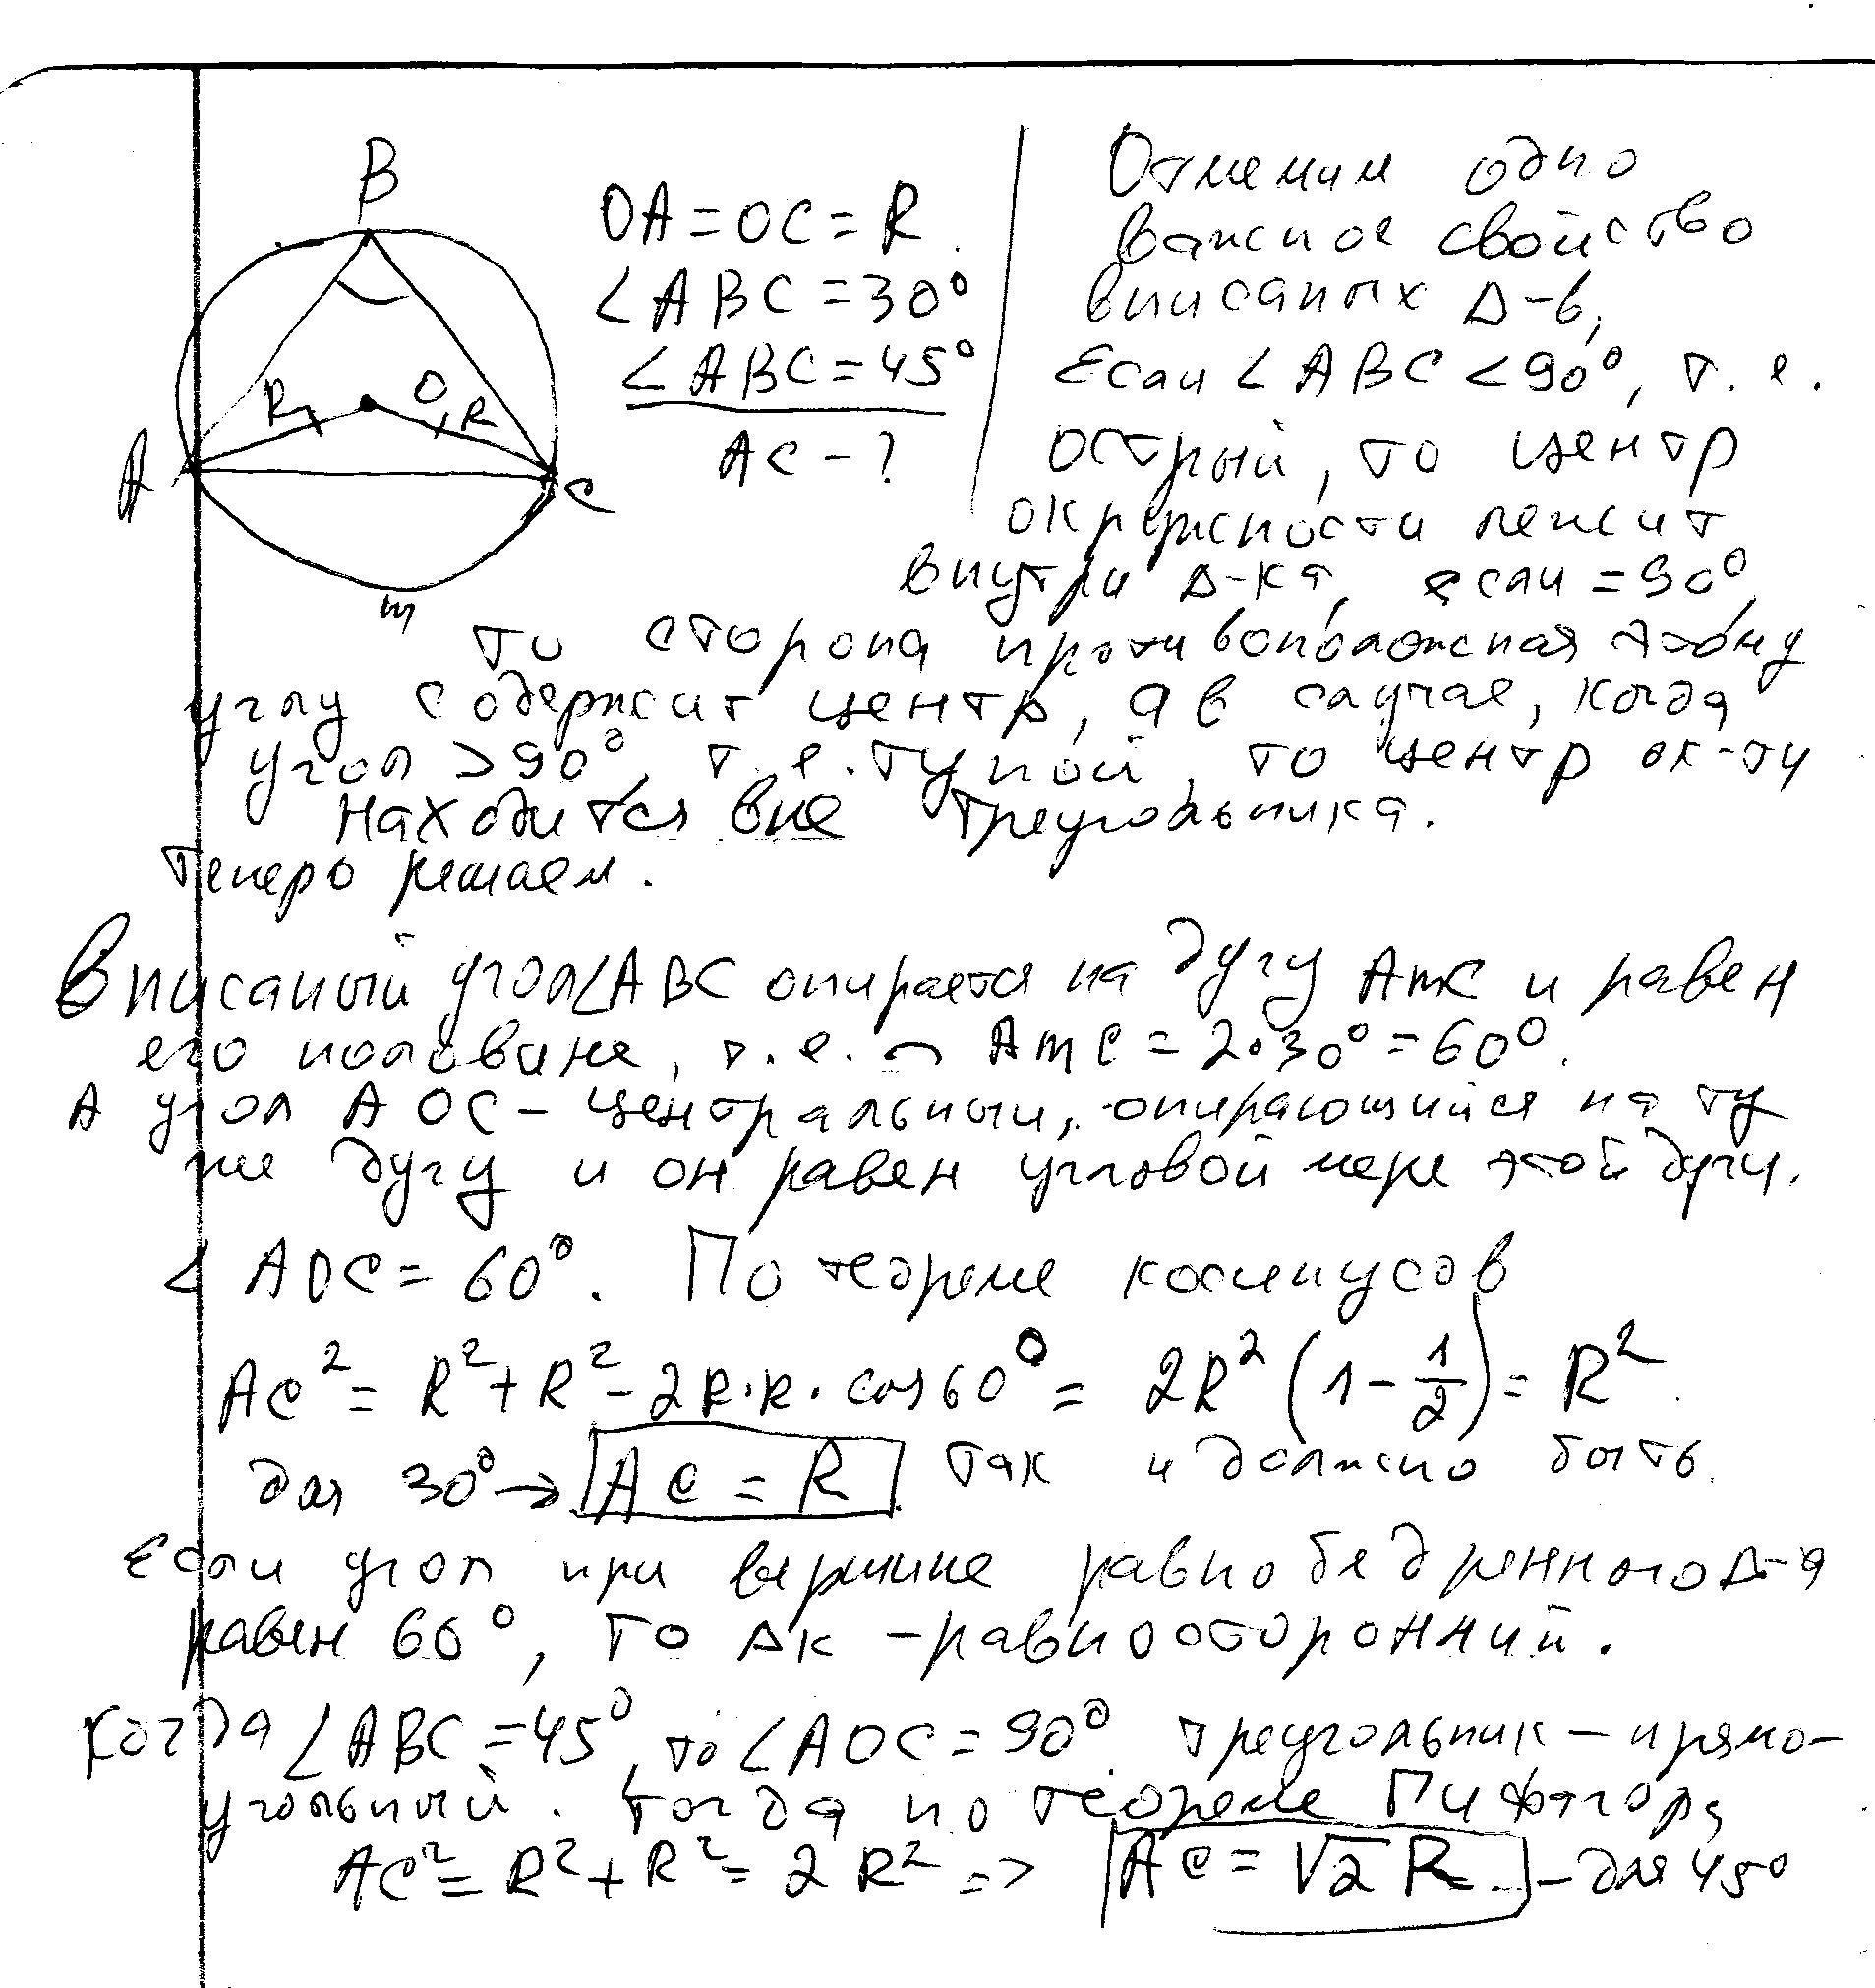 B
OA = OC = R.
∠ABC = 30°
∠ABC = 45°
AC - ?
R
O
R
A
C
m
Отметим одно
важное свойство
вписаных Δ-в,
Если ∠ABC < 90°, т. е.
острый, то центр
окружности лежит
внутри Δ-ка, если = 90°,
то сторона противоположная этому
углу содержит центр, а в случае, когда
угол > 90°, т. е. тупой, то центр ок-ти
находится вне треугольника.
Теперь решаем.
Вписаный угол ∠ABC опирается на дугу AmC и равен
его половине, т. е. ⌒ AmC = 2·30° = 60°.
А угол AOC – центральный, опирающийся на ту
же дугу и он равен угловой мере этой дуги.
∠AOC = 60°. По теореме косинусов
AC² = R² + R² - 2R·R·cos60° = 2R² (1 - 1/2) = R².
для 30° → AC = R так и должно быть.
Если угол при вершине равнобедренного Δ-а
равен 60°, то Δк – равносторонний.
Когда ∠ABC = 45°, то ∠AOC = 90° треугольник – прямо-
угольный. Тогда по теореме Пифагора
AC² = R² + R² = 2R² => AC = √2 R – для 45°